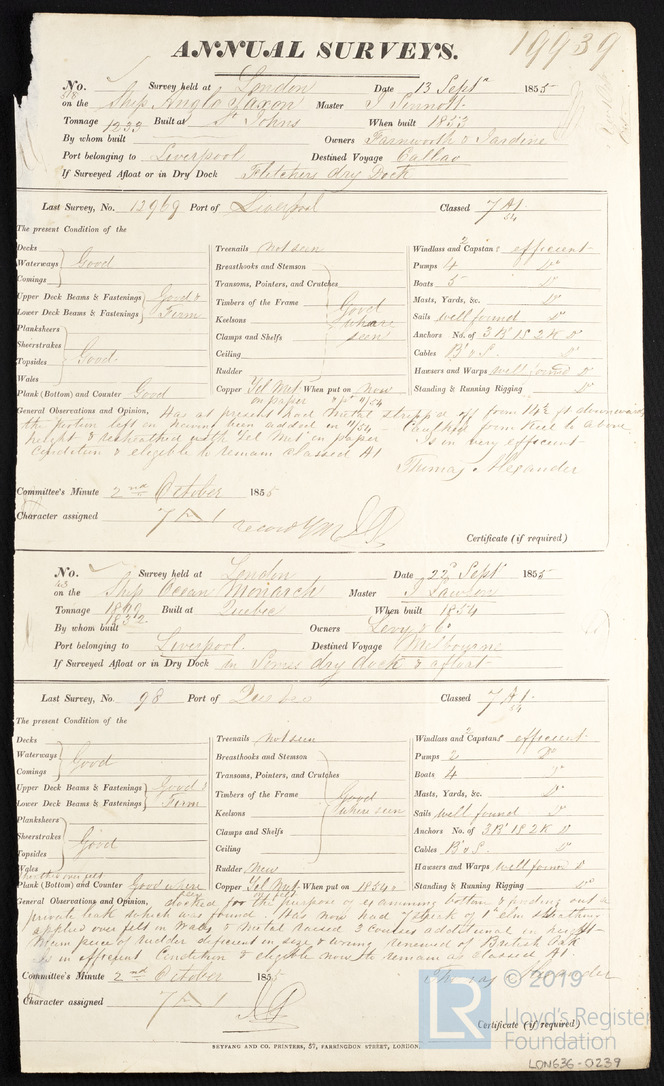 19939
ANNUAL SURVEYS.
No. 318 Survey held at London Date 13 Septr 1855
on the Ship Anglo Saxon Master J Sinnott
Tonnage 1233 Built at St Johns When built 1853
By whom built Owners Farnworth & Jardine
Port belonging to Liverpool Destined Voyage Callao
If Surveyed Afloat or in Dry Dock Fletchers dry Dock
Last Survey, No. 12969 Port of Liverpool Classed 7 A1 /54
The present Condition of the
Decks
Waterways Good
Comings
Upper Deck Beams & Fastenings Good &
Lower Deck Beams & Fastenings Firm
Planksheers
Sheerstrakes
Topsides Good
Wales
Plank (Bottom) and Counter Good
Treenails not seen
Breasthooks and Stemson
Transoms, Pointers, and Crutches
Timbers of the Frame Good
Keelsons where
Clamps and Shelfs seen
Ceiling
Rudder
Copper Yel Met When put on Now
on paper
Windlass and 2 Capstans efficient
Pumps 4 Do
Boats 5 Do
Masts, Yards, &c. Do
Sails well found Do
Anchors No. of 3 Br 1 S 2 K Do
Cables Br & S Do
Hawsers and Warps well found Do
Standing & Running Rigging Do
General Observations and Opinion, Has at present had metal stripped off from 14½ ft downwards
the portion left on having been added in 11/54 Caulked from Keel to above
height & resheathed with Yel Met in paper Is in very efficient
Condition & eligible to remain classed A1
Thomas Alexander
Committee's Minute 2nd October 1855
Character assigned 7 A 1 record YM
Certificate (if required)
No. 43 Survey held at London Date 22d Septr 1855
on the Ship Ocean Monarch Master J Lawson
Tonnage 1899 Built at Quebec When built 1854
1832
By whom built Owners Levy & Co
Port belonging to Liverpool Destined Voyage Melbourne
If Surveyed Afloat or in Dry Dock in dry dock & afloat
Last Survey, No. 98 Port of Quebec Classed 7 A1 /54
The present Condition of the
Decks
Waterways Good
Comings
Upper Deck Beams & Fastenings Good &
Lower Deck Beams & Fastenings Firm
Planksheers
Sheerstrakes
Topsides Good
Wales
Plank (Bottom) and Counter Good where
seen
Treenails not seen
Breasthooks and Stemson
Transoms, Pointers, and Crutches
Timbers of the Frame Good
Keelsons where seen
Clamps and Shelfs
Ceiling
Rudder New
Copper Yel Met When put on 1854
Windlass and 2 Capstans efficient
Pumps 2 Do
Boats 4 Do
Masts, Yards, &c. Do
Sails well found Do
Anchors No. of 3 Br 1 S 2 K Do
Cables Br & S Do
Hawsers and Warps well found Do
Standing & Running Rigging Do
General Observations and Opinion, docked for the purpose of examining bottom & finding out a
private leak which was found. Has now had 7 strak of 1 in elm sheathing
applied over felt on Wales & Metal raised 2 courses additional in height
Main piece of rudder different in size & wrung renewed of British Oak
is in efficient Condition & eligible now to remain as Classed A1
Thomas Alexander
Committee's Minute 2nd October 1855
Character assigned 7 A 1
Certificate (if required)
SEYFANG AND CO. PRINTERS, 57, FARRINGDON STREET, LONDON.
LR © 2019
Lloyd's Register
Foundation
LON636-0239